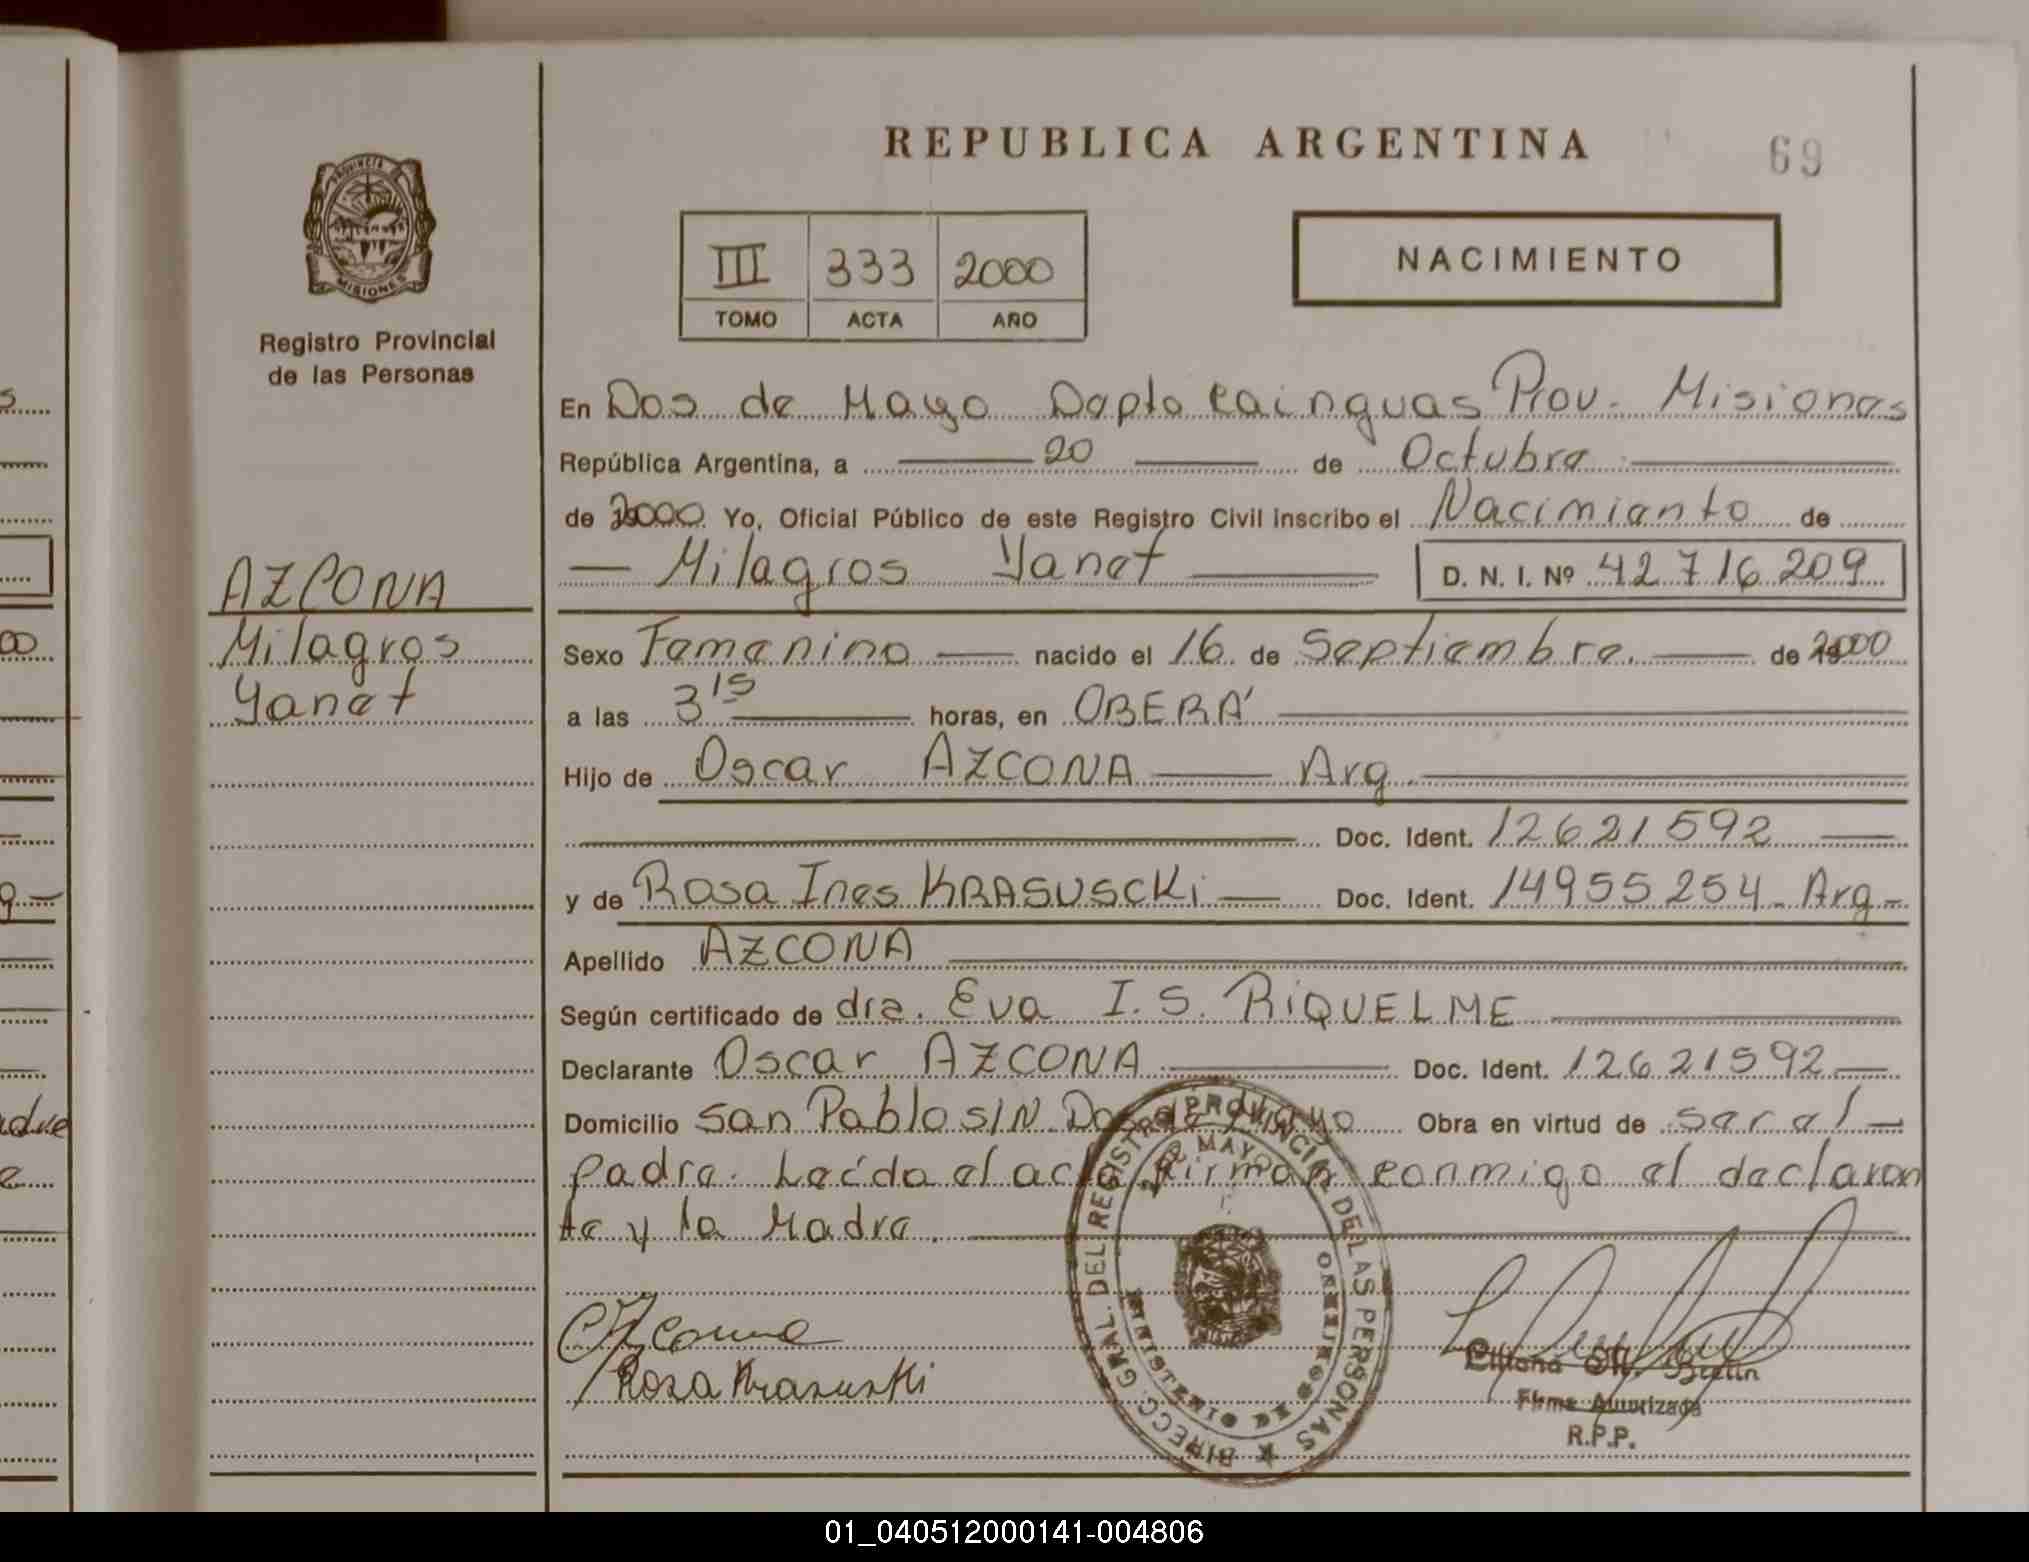 REPUBLICA ARGENTINA
69
PROVINCIA DE
MISIONES
Registro Provincial
de las Personas
III 333 2000
TOMO ACTA AÑO
NACIMIENTO
En Dos de Mayo Dapto Cainguas Prov. Misiones
República Argentina, a 20 de Octubre
de 2000 Yo, Oficial Público de este Registro Civil inscribo el Nacimiento de
Milagros Yanet D. N. I. Nº 42716209
AZCONA
Milagros
Yanet
Sexo Femenino nacido el 16 de Septiembre. de 2000
a las 3 15 horas, en OBERA'
Hijo de Oscar AZCONA Arg.
Doc. Ident. 12621592
y de Rosa Ines KRASUSCKi Doc. Ident. 14955254 - Arg -
Apellido AZCONA
Según certificado de dra. Eva I. S. RiQUELME
Declarante Oscar AZCONA Doc. Ident. 12621592
Domicilio San Pablo S/N Dos de Mayo Obra en virtud de ser al
padre. Leída el acta firman conmigo el declaran
te y la Madre.
DIRECC. GRAL. DEL REGISTRO PROVINCIAL DE LAS PERSONAS
2 DE MAYO
MINISTERIO DE GOBIERNO
Azcona
Rosa Krasuski
Firma Autorizada
R.P.P.
01_040512000141-004806